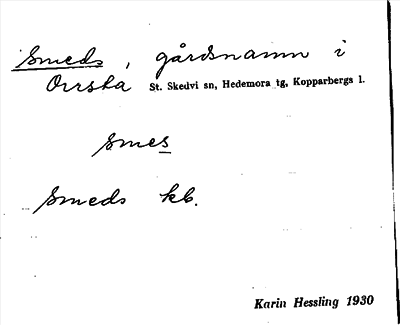 Smeds, gårdsnamn i
Orrsta St. Skedvi sn, Hedemora tg, Kopparbergs l.
smes
Smeds kb.
Karin Hessling 1930